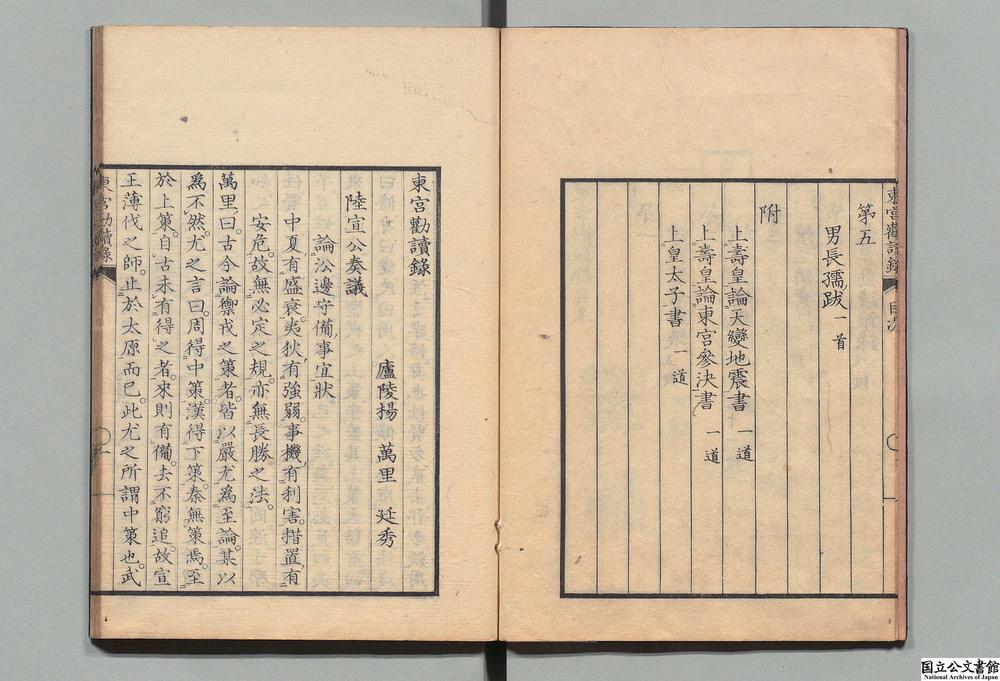 東宮勸讀錄 目次
第五
男長孺跋 一首
附
上壽皇論天變地震書 一道
上壽皇論東宮參決書 一道
上皇太子書 一道
東宮勸讀錄
廬陵楊 萬里 廷秀
陸宣公奏議
論㳂邊守備事宜狀
中夏有盛衰。夷狄有強弱。事機有利害。措置有
安危。故無必定之規。亦無長勝之法。
萬里曰。古今論禦戎之策者。皆以嚴尤爲至論。某以
爲不然。尤之言曰。周得中策。漢得下策。秦無策焉。至
於上策。自古未有得之者。來則有備。去不窮追。故宣
王薄伐之師。止於太原而已。此尤之所謂中策也。武
東宮勸讀錄
国立公文書館
National Archives of Japan